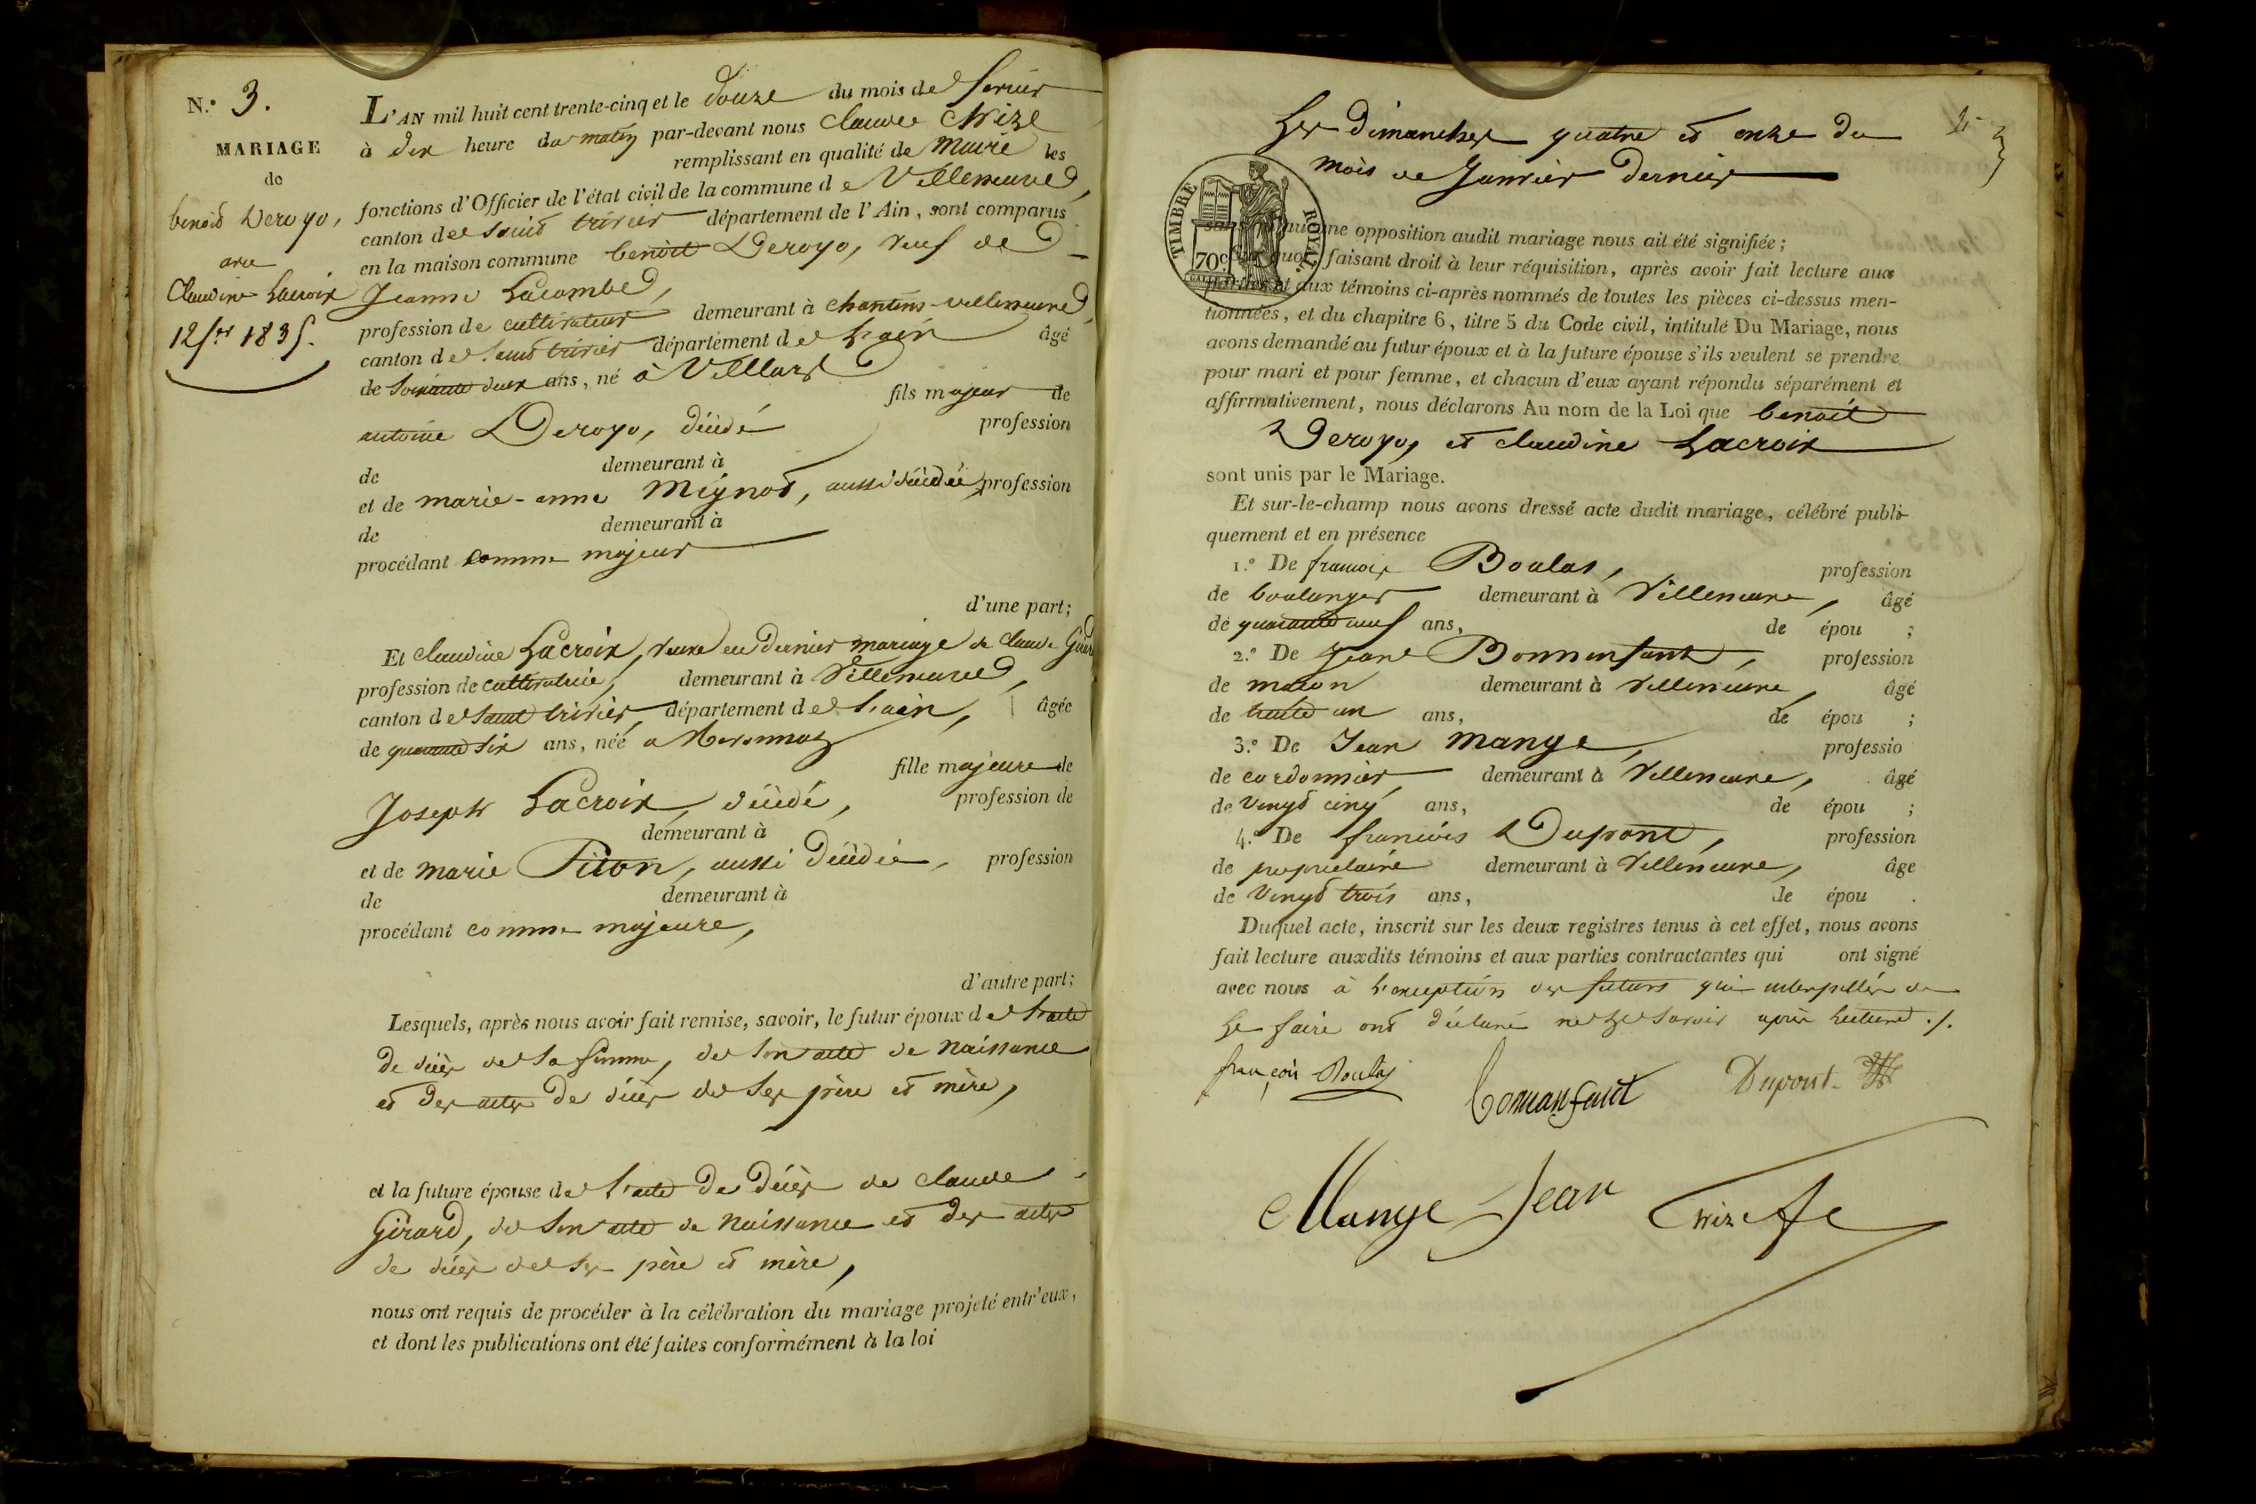 N.º 3.
MARIAGE
de
benoit Deroyo,
avec
Claudine Lacroix
12 fer 1835.
L'AN mil huit cent trente-cinq et le douze du mois de fevrier
à dix heure du matin par-devant nous claude Chize
remplissant en qualité de Maire les
fonctions d'Officier de l'état civil de la commune de Villeneuve,
canton de saint trivier département de l'Ain, sont comparus
en la maison commune benoit Deroyo, veuf de
Jeanne Lacombe,
profession de cultivateur demeurant à chantins-villeneuve,
canton de saint trivier département de l'ain âgé
de soixante deux ans, né à Villars
fils majeur de
antoine Deroyo, décédé profession
de demeurant à
et de marie-anne Mignot, aussi décédée, profession
de demeurant à
procédant comme majeur
d'une part;
Et claudine Lacroix, veuve en dernier mariage de claude Girard
profession de cultivatrice, demeurant à Villeneuve,
canton de saint trivier, département de l'ain, âgée
de quarante six ans, née a
fille majeure de
Joseph Lacroix, décédé, profession de
demeurant à
et de marie Piton, aussi décédée, profession
de demeurant à
procédant comme majeure,
d'autre part;
Lesquels, après nous avoir fait remise, savoir, le futur époux de l'acte
de décès de sa femme, de son acte de naissance
et des actes de décès de ses père et mère,
et la future épouse de l'acte de décès de claude
Girard, de son acte de naissance et des actes
de décès de ses père et mère,
nous ont requis de procéder à la célébration du mariage projeté entr'eux,
et dont les publications ont été faites conformément à la loi
Les dimanches quatre et onze du
mois de Janvier dernier
TIMBRE ROYAL
70c
sans qu'aucune opposition audit mariage nous ait été signifiée;
faisant droit à leur réquisition, après avoir fait lecture aux
parties et aux témoins ci-après nommés de toutes les pièces ci-dessus men-
tionnées, et du chapitre 6, titre 5 du Code civil, intitulé Du Mariage, nous
avons demandé au futur époux et à la future épouse s'ils veulent se prendre
pour mari et pour femme, et chacun d'eux ayant répondu séparément et
affirmativement, nous déclarons Au nom de la Loi que benoit
Deroyo, et claudine Lacroix
sont unis par le Mariage.
Et sur-le-champ nous avons dressé acte dudit mariage, célébré publi-
quement et en présence
1.º De francois Boulas, profession
de boulanger demeurant à Villeneuve, âgé
de quarante neuf ans, de épou ;
2.º De Jean Bonnenfant, profession
de maçon demeurant à Villeneuve, âgé
de trente un ans, de épou ;
3.º De Jean Mange, professio
de cordonnier demeurant à Villeneuve, âgé
de vingt cinq ans, de épou ;
4.º De francois Dupont, profession
de proprietaire demeurant à Villeneuve, âge
de vingt trois ans, de épou .
Duquel acte, inscrit sur les deux registres tenus à cet effet, nous avons
fait lecture auxdits témoins et aux parties contractantes qui ont signé
avec nous à l'exception des futurs qui interpellés de
le faire ont déclaré ne le savoir après lecture ./.
françois Boulas
bonnanfant
Dupont
Mange Jean
Chize